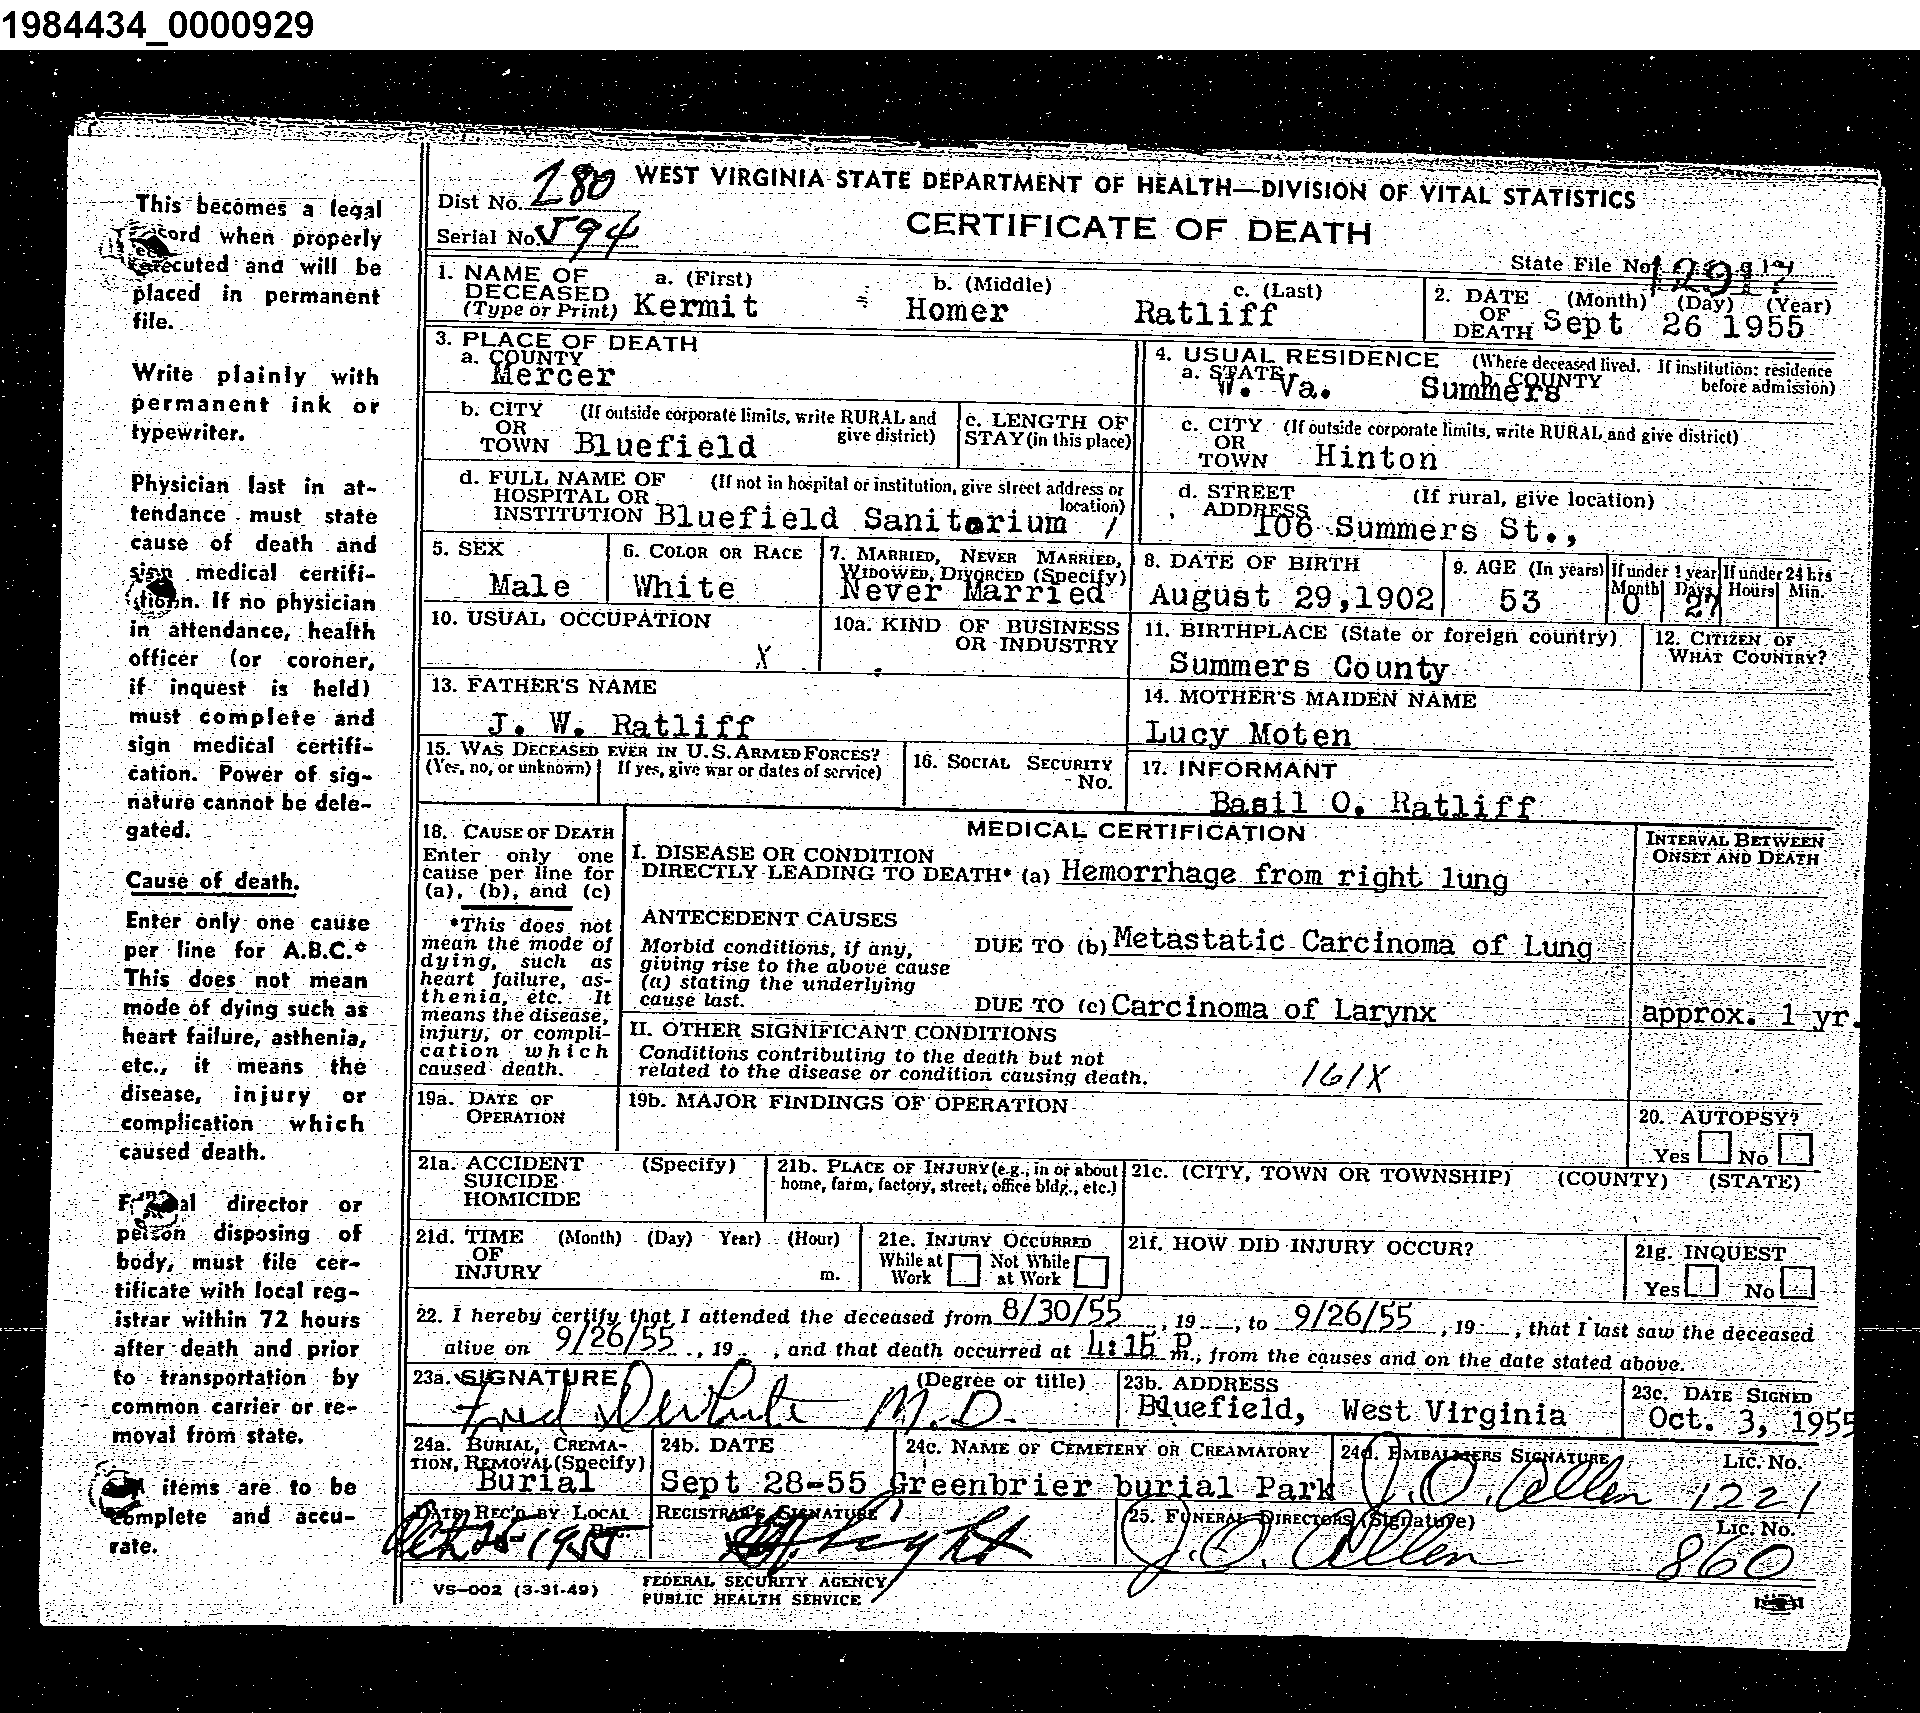 1984434_0000929
This becomes a legal
record when properly
executed and will be
placed in permanent
file.
Write plainly with
permanent ink or
typewriter.
Physician last in at-
tendance must state
cause of death and
sign medical certifi-
If no physician
in attendance, health
officer (or coroner,
if inquest is held)
must complete and
sign medical certifi-
cation. Power of sig-
nature cannot be dele-
gated.
Cause of death.
Enter only one cause
per line for A.B.C.*
This does not mean
mode of dying such as
heart failure, asthenia,
etc., it means the
disease, injury or
complication which
caused death.
Funeral director or
person disposing of
body, must file cer-
tificate with local reg-
istrar within 72 hours
after death and prior
to transportation by
common carrier or re-
moval from state.
All items are to be
complete and accu-
rate.
Dist No. 280
WEST VIRGINIA STATE DEPARTMENT OF HEALTH—DIVISION OF VITAL STATISTICS
Serial No. 594
CERTIFICATE OF DEATH
State File No.
1. NAME OF DECEASED (Type or Print) a. (First) b. (Middle) c. (Last)
Kermit Homer Ratliff
2. DATE OF DEATH (Month) (Day) (Year)
Sept 26 1955
3. PLACE OF DEATH
a. COUNTY
Mercer
4. USUAL RESIDENCE (Where deceased lived. If institution: residence before admission)
a. STATE b. COUNTY
W. Va. Summers
b. CITY OR TOWN (If outside corporate limits, write RURAL and give district)
Bluefield
c. LENGTH OF STAY (in this place)
c. CITY OR TOWN (If outside corporate limits, write RURAL and give district)
Hinton
d. FULL NAME OF HOSPITAL OR INSTITUTION (If not in hospital or institution, give street address or location)
Bluefield Sanitarium
d. STREET ADDRESS (If rural, give location)
106 Summers St.,
5. SEX
Male
6. COLOR OR RACE
White
7. MARRIED, NEVER MARRIED, WIDOWED, DIVORCED (Specify)
Never Married
8. DATE OF BIRTH
August 29,1902
9. AGE (In years)
53
If under 1 year
Month Days
0 27
If under 24 hrs
Hours Min.
10. USUAL OCCUPATION
X
10a. KIND OF BUSINESS OR INDUSTRY
11. BIRTHPLACE (State or foreign country)
Summers County
12. CITIZEN OF WHAT COUNTRY?
13. FATHER'S NAME
J. W. Ratliff
14. MOTHER'S MAIDEN NAME
Lucy Moten
15. WAS DECEASED EVER IN U.S. ARMED FORCES?
(Yes, no, or unknown) If yes, give war or dates of service)
16. SOCIAL SECURITY No.
17. INFORMANT
Basil O. Ratliff
18. CAUSE OF DEATH
Enter only one
cause per line for
(a), (b), and (c)
*This does not
mean the mode of
dying, such as
heart failure, as-
thenia, etc. It
means the disease,
injury, or compli-
cation which
caused death.
MEDICAL CERTIFICATION
INTERVAL BETWEEN ONSET AND DEATH
I. DISEASE OR CONDITION
DIRECTLY LEADING TO DEATH* (a) Hemorrhage from right lung
ANTECEDENT CAUSES
Morbid conditions, if any,
giving rise to the above cause
(a) stating the underlying
cause last.
DUE TO (b) Metastatic Carcinoma of Lung
DUE TO (c) Carcinoma of Larynx approx. 1 yr.
II. OTHER SIGNIFICANT CONDITIONS
Conditions contributing to the death but not
related to the disease or condition causing death.
161X
19a. DATE OF OPERATION
19b. MAJOR FINDINGS OF OPERATION
20. AUTOPSY?
Yes No
21a. ACCIDENT SUICIDE HOMICIDE (Specify)
21b. PLACE OF INJURY (e.g., in or about home, farm, factory, street, office bldg., etc.)
21c. (CITY, TOWN OR TOWNSHIP) (COUNTY) (STATE)
21d. TIME OF INJURY (Month) (Day) Year) (Hour) m.
21e. INJURY OCCURRED
While at Work Not While at Work
21f. HOW DID INJURY OCCUR?
21g. INQUEST
Yes No
22. I hereby certify that I attended the deceased from 8/30/55, 19__, to 9/26/55, 19__, that I last saw the deceased
alive on 9/26/55, 19__, and that death occurred at 4:15 P m., from the causes and on the date stated above.
23a. SIGNATURE (Degree or title)
Fred M.D.
23b. ADDRESS
Bluefield, West Virginia
23c. DATE SIGNED
Oct. 3, 1955
24a. BURIAL, CREMA-
TION, REMOVAL (Specify)
Burial
24b. DATE
Sept 28-55
24c. NAME OF CEMETERY OR CREAMATORY
Greenbrier burial Park
24d. EMBALMERS SIGNATURE Lic. No.
J. O. Allen 1221
DATE REC'D BY LOCAL
1955
REGISTRAR'S SIGNATURE
25. FUNERAL DIRECTORS (Signature) Lic. No.
J. O. Allen 860
VS—002 (3-31-49)
FEDERAL SECURITY AGENCY
PUBLIC HEALTH SERVICE